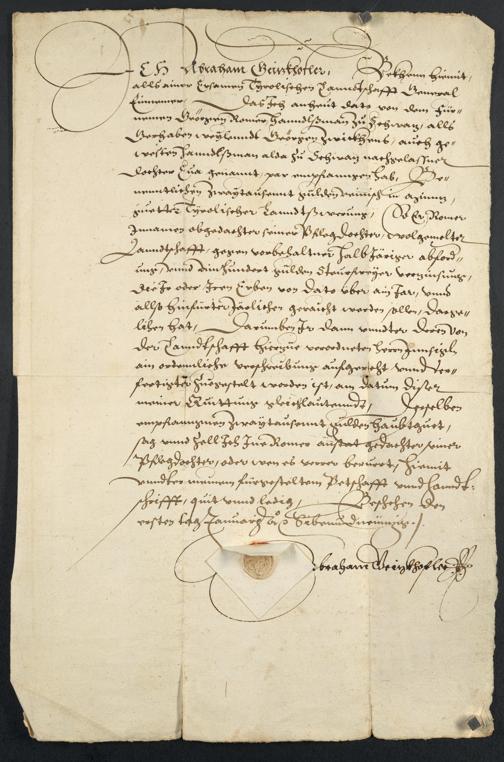 Ich Abraham Geitzkofler, Bekhenn hiemit,
alls ainer Ersamen Tyrolischen Lanndtschafft General
Einnemer, Das Ich anheut dato von dem Für=
nemen Geörgen Romer Hanndlsman zu Schwaz, alls
Gerhaben weylendt Geörgen auch ge=
westen Hanndlsman alda zu Schwaz nachgelassner
Tochter Eua genannt, par empfanngen hab, Be=
nenntlichen Zwaytausent gulden reinisch in
guetter Tyrolischer Lanndtswerung, So Er Romer
Innamen abgedachter seiner Pflegdochter, wolgemelter
Lanndtschafft, gegen vorbehaltner halb Järiger abford=
ung, vnnd ainhundert gulden Steurfreyer verzinsung,
die Ir oder Iren Erben von dato über ain Jar, vnnd
allso hinfüran Järlichen geraicht werden sollen, dargeli=
lichen hat, Darumben Ir dann vnnder deren von
der Lanndtschafft hierzue verordneten herrn Innsigln
ain ordennliche verschreibung aufgericht vnnd ge=
fertigter zuegestelt worden ist, an datum diser
meiner Quittung gleichlautenndt, Desselben
empfanngnen Zwaytausent gulden haubtguet,
sag vnnd zell Ich Ine Romer anstat gedachter seiner
Pflegdochter, oder wen es verrer beruert, hiemit
vnnder meinem fürgestelltem Petschafft vnnd Hanndt=
schrifft, quit vnnd ledig, Beschehen den
ersten tag January Im Sibenunddreissig
Abraham Geitzkofler